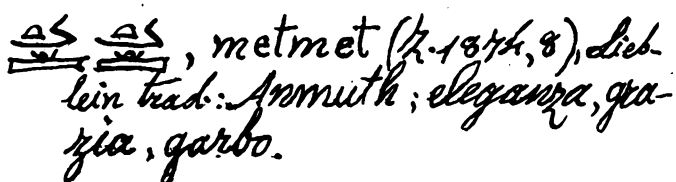 , metmet (Z. 1874, 8), Lieb-
lein trad.: Anmuth; eleganza, gra-
zia, garbo.